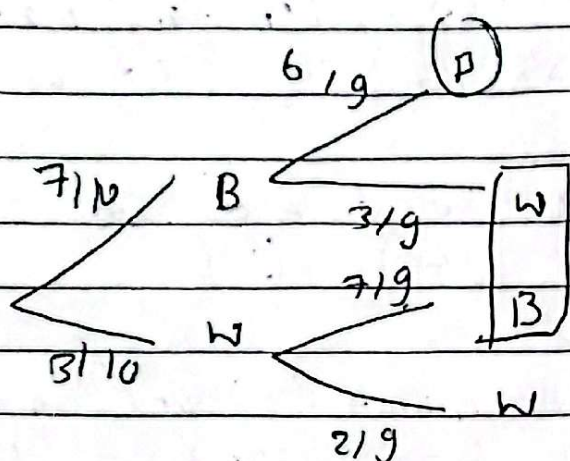 6/9 B
7/10 B
3/9 W
7/9 B
3/10 W
2/9 W